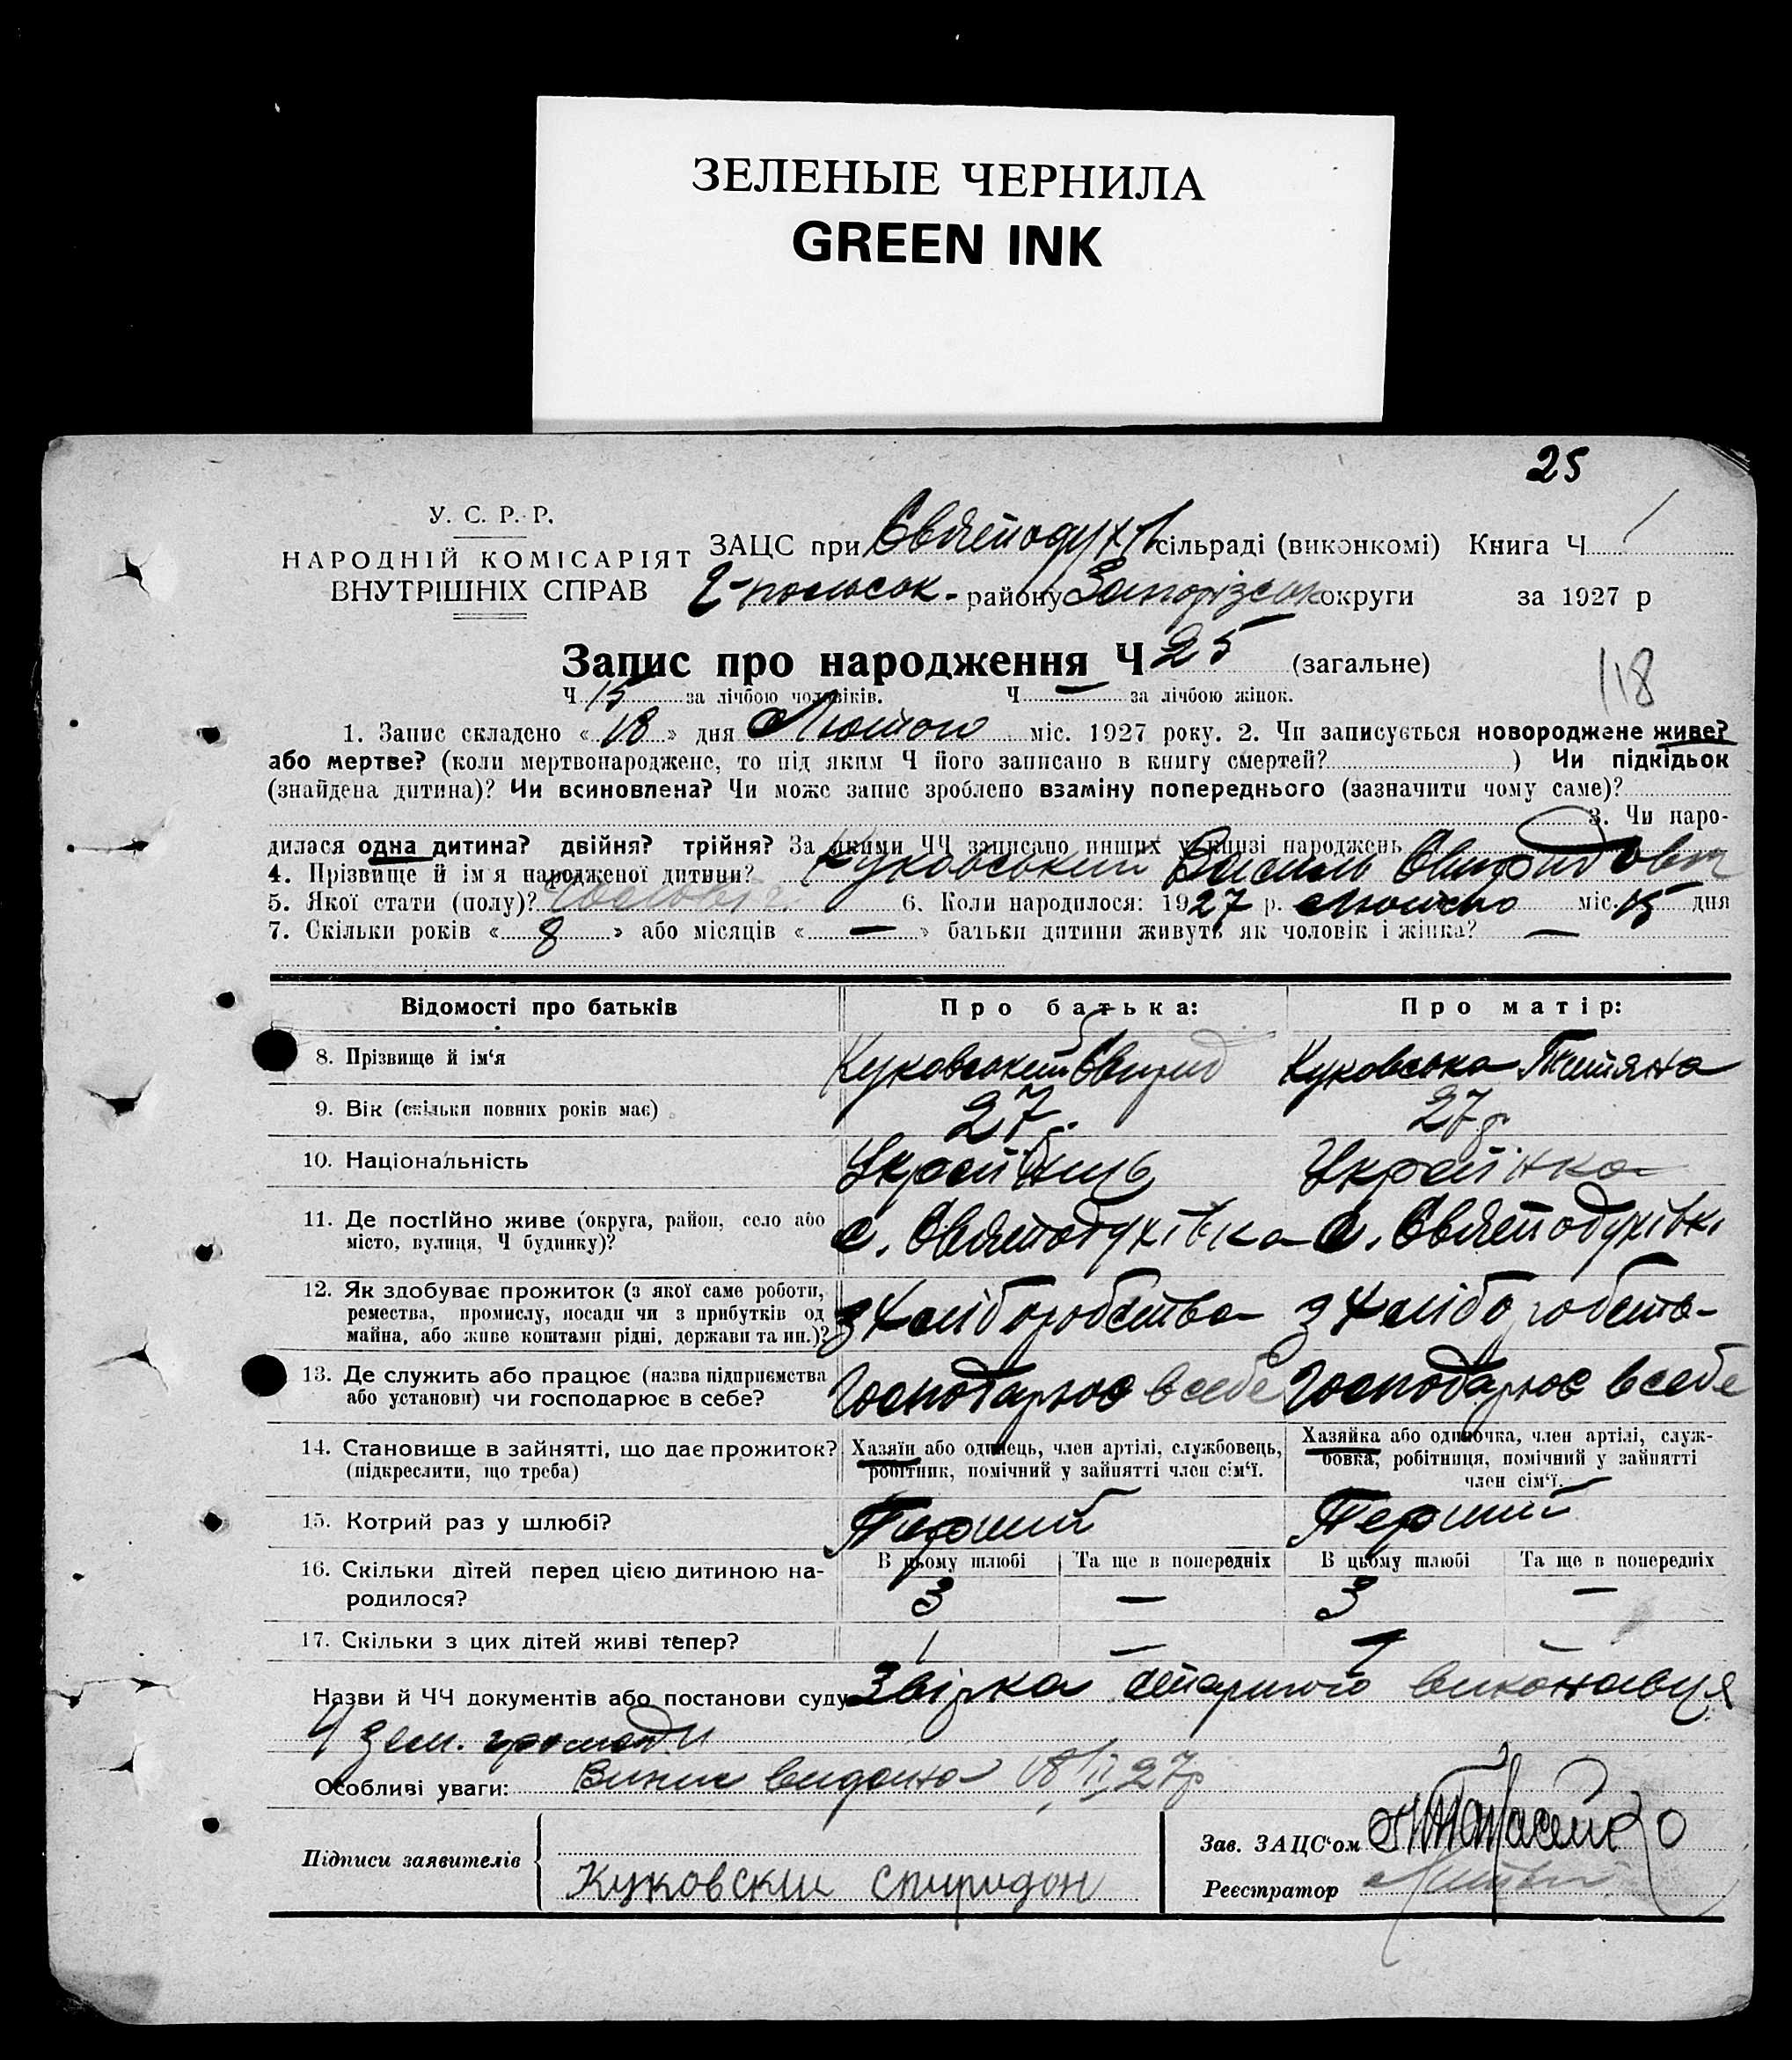 ЗЕЛЕНЫЕ ЧЕРНИЛА
GREEN INK
25
У. С. Р. Р.
НАРОДНІЙ КОМІСАРІЯТ
ВНУТРІШНІХ СПРАВ
ЗАЦС при Святодух сільраді (виконкомі) Книга Ч 1
район Запорізськ округи за 1927 р
Запис про народження Ч 25 (загальне)
Ч 15 за лічбою чоловіків. Ч — за лічбою жінок.
118
1. Запис складено « 18 » дня Лютого міс. 1927 року. 2. Чи записується новороджене живе?
або мертве? (коли мертвонароджене, то під яким Ч його записано в книгу смертей? ) Чи підкідьок
(знайдена дитина)? Чи всиновлена? Чи може запис зроблено взаміну попереднього (зазначити чому саме)?
3. Чи наро-
дилася одна дитина? двійня? трійня? За якими ЧЧ записано инших у книзі народжень
4. Прізвище й ім'я народженої дитини? Куковський Василь Свиридов
5. Якої стати (полу)? Чоловіч 6. Коли народилося: 1927 р. Лютого міс. 15 дня
7. Скільки років « 8 » або місяців « — » батьки дитини живуть як чоловік і жінка? —
Відомості про батьків Про батька: Про матір:
8. Прізвище й ім'я Куковський Свирид Куковська Тетяна
9. Вік (скільки повних років має) 27 р. 27 р.
10. Національність Українець Українка
11. Де постійно живе (округа, район, село або
місто, вулиця, Ч будинку)? с. Святодухівка с. Святодухівкі
12. Як здобуває прожиток (з якої саме роботи,
ремества, промислу, посади чи з прибутків од
майна, або живе коштами рідні, держави та ин.)? З хліборобства З хліборобств-
13. Де служить або працює (назва підприємства
або установи) чи господарює в себе? Господарює в себе Господарює в себе
14. Становище в зайнятті, що дає прожиток?
(підкреслити, що треба)
Хазяїн або одинець, член артілі, службовець,
робітник, помічний у зайнятті член сім'ї.
Хазяйка або одиночка, член артілі, служ-
бовка, робітниця, помічний у зайнятті
член сім'ї.
15. Котрий раз у шлюбі? Перший Перший
В цьому шлюбі Та ще в попередніх В цьому шлюбі Та ще в попередніх
16. Скільки дітей перед цією дитиною на-
родилося? 3 — 3 —
17. Скільки з цих дітей живі тепер? 1 — 1
Назви й ЧЧ документів або постанови суду Звірка старшого виконавця
зем. громади
Особливі уваги: Випис видано 18/II 27р
Підписи заявителів
Куковскии Спиридон
Зав. ЗАЦС'ом
Реєстратор